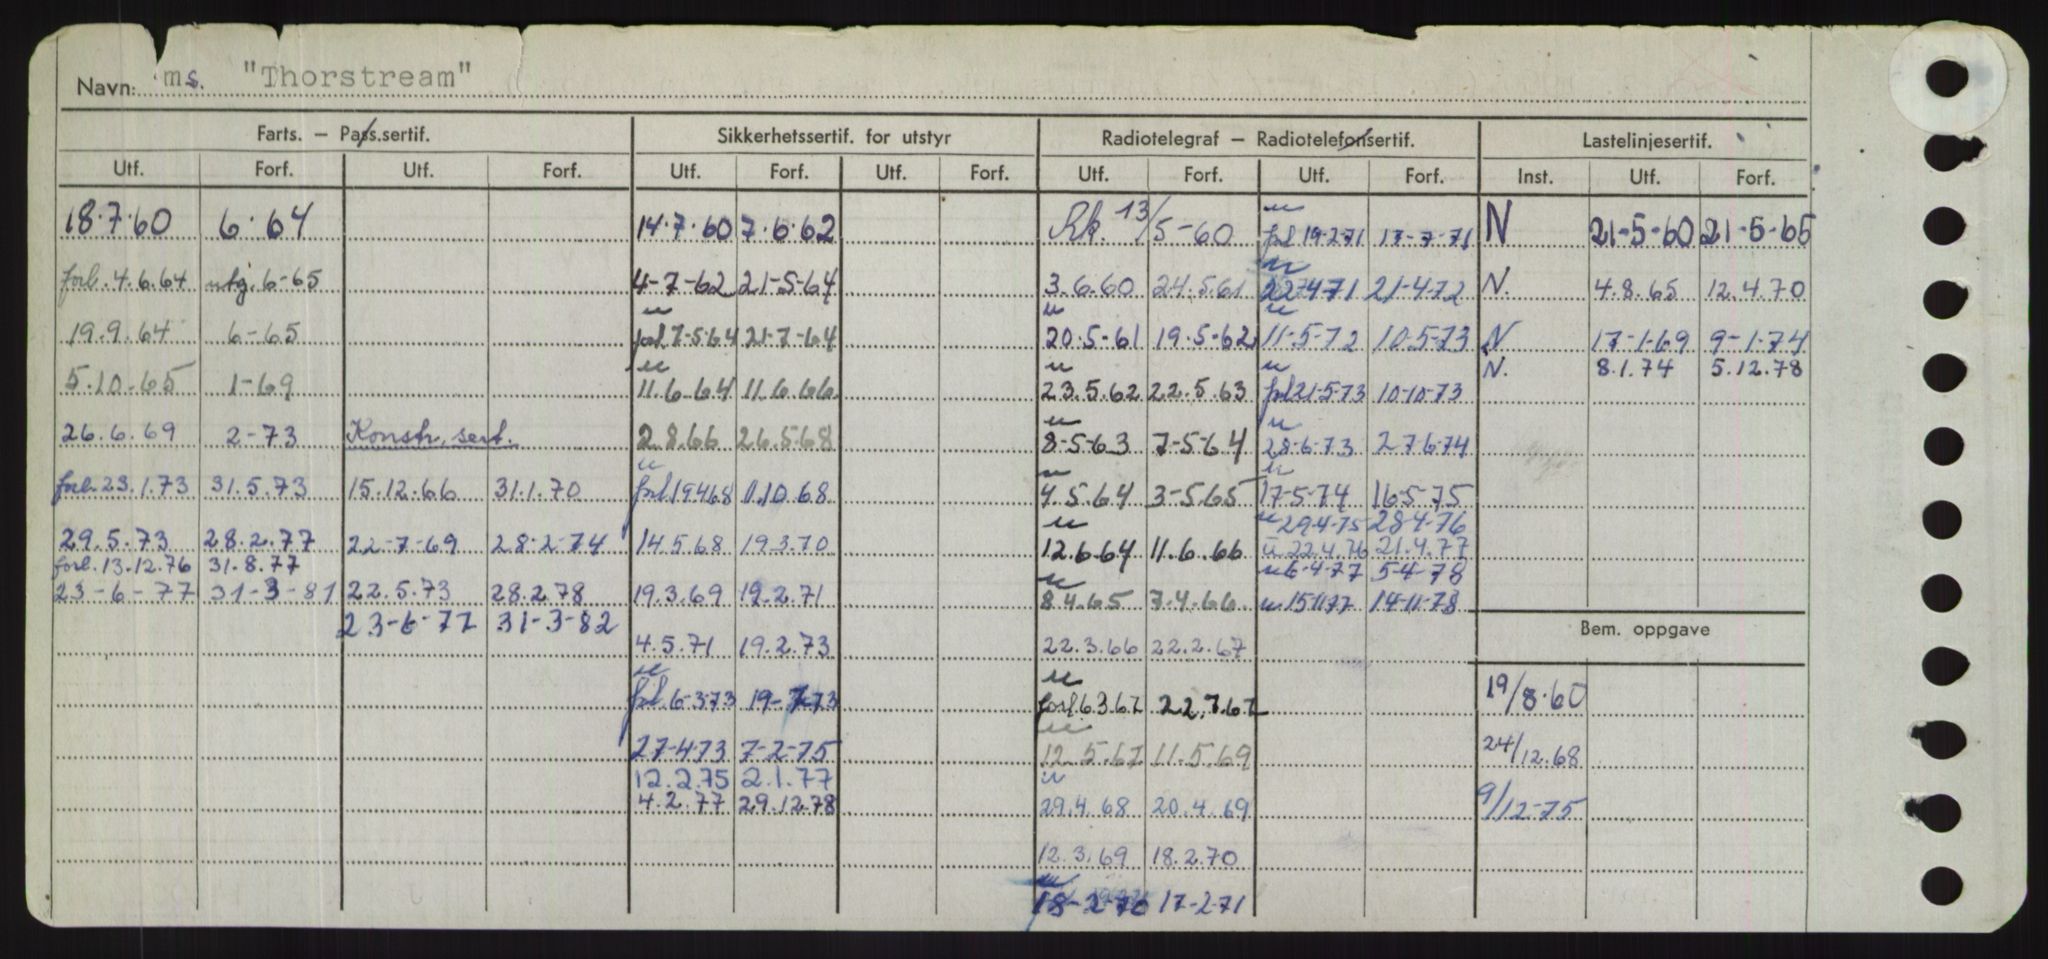 Navn: ms. "Thorstream"
Farts. — Pass.sertif. Sikkerhetssertif. for utstyr Radiotelegraf — Radiotelefonsertif. Lastelinjesertif.
Utf. Forf. Utf. Forf. Utf. Forf. Utf. Forf. Utf. Forf. Utf. Forf. Inst. Utf. Forf.
18.7.60 6.64 14.7.60 7.6.62 Rk. 13/5-60 forl 19.2.71 17-7-71 N 21-5-60 21-5-65
forl. 4.6.64 utg. 6-65 4-7-62 21-5-64 3.6.60 24.5.61 22-4-71 21-4-72 N. 4.8.65 12.4.70
19.9.64 6-65 forl 7-5-64 21-7-64 20.5-61 19.5-62 11-5-72 10-5-73 N 17-1-69 9-1-74
N. 8.1.74 5.12.78
5.10.65 1-69 11.6.64 11.6.66 23.5.62 22.5.63 forl 21-5-73 10-10-73
26.6.69 2-73 Konstr. sert. 2.8.66 26.5.68 8-5-63 7-5-64 28-6-73 27-6-74
forl. 23.1.73 31.5.73 15.12.66 31.1.70 forl 19.4.68 11.10.68 4.5.64 3-5.65 17-5-74 16-5-75
29-4-75 28-4-76
29.5.73 28.2.77 22-7-69 28-2-74 14.5.68 19.3.70 12.6.64 11.6.66 22.4.76 21.4.77
forl. 13.12.76 31.8.77 6-4-77 5-4-78
23-6-77 31-3-81 22.5.73 28.2.78 19.3.69 19.2.71 8.4.65 7.4.66 15-11-77 14-11-78
23-6-77 31-3-82
Bem. oppgave
4.5.71 19.2.73 22.3.66 22.2.67
forl. 6-3-73 19-7-73 forl 6.3.67 22.7.67 19/8.60
27-4-73 7-2-75 12.5.67 11.5.69 24/12.68
12.2.75 2.1.77
4.2.77 29.12.78 29.4.68 20.4.69 9/12-75
12.3.69 18.2.70
18-2-70 17-2-71